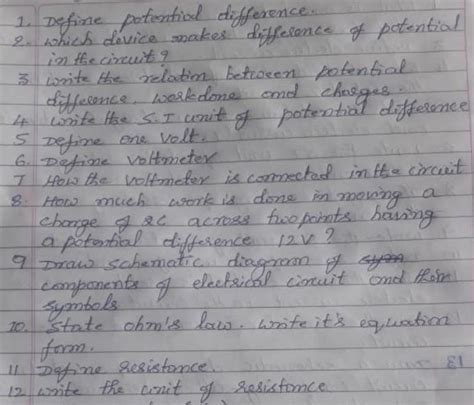 1. Define potential difference.
2. Which device makes difference of potential
in the circuit?
3. Write the relation between potential
difference, workdone and charges.
4 Write the S.I unit of potential difference
5 Define one Volt.
6. Define Voltmeter
7 How the voltmeter is connected in the circuit
8. How much work is done in moving a
charge of 2C across two points having
a potential difference 12V?
9 Draw schematic diagram of
components of electrical circuit and their
symbols
10. State ohm's law. Write it's equation
form.
11 Define resistance. 81
12 Write the unit of resistance